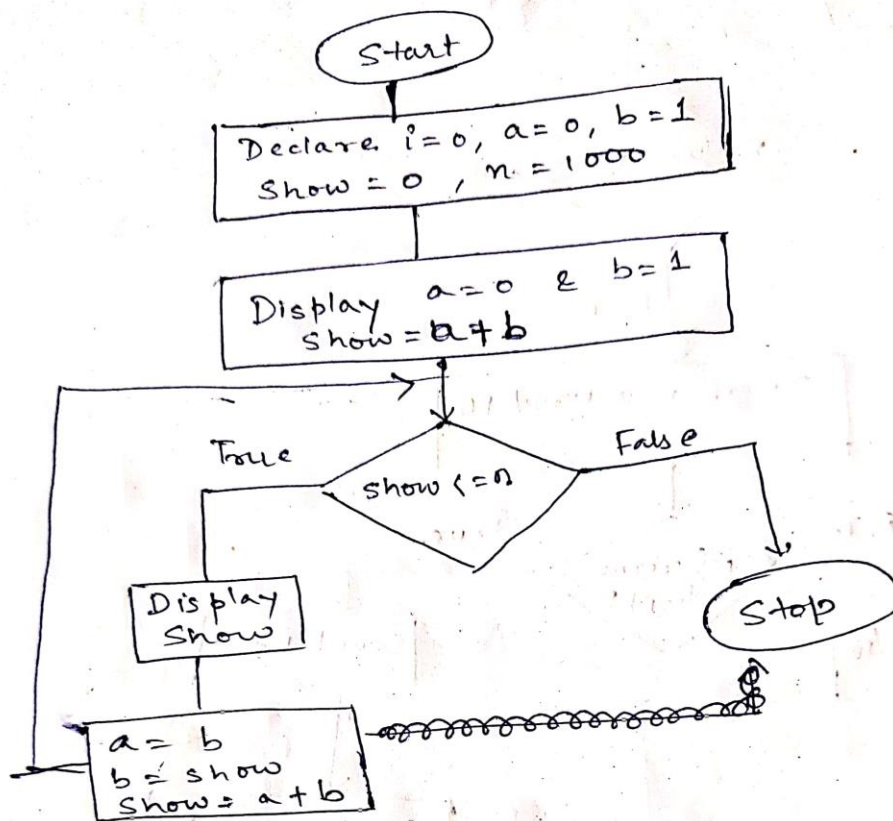 Start
Declare i=0, a=0, b=1
Show = 0 , n = 1000
Display a=0 & b=1
Show = a+b
True
False
Show <= n
Display
Show
Stop
a = b
b = show
Show = a+b